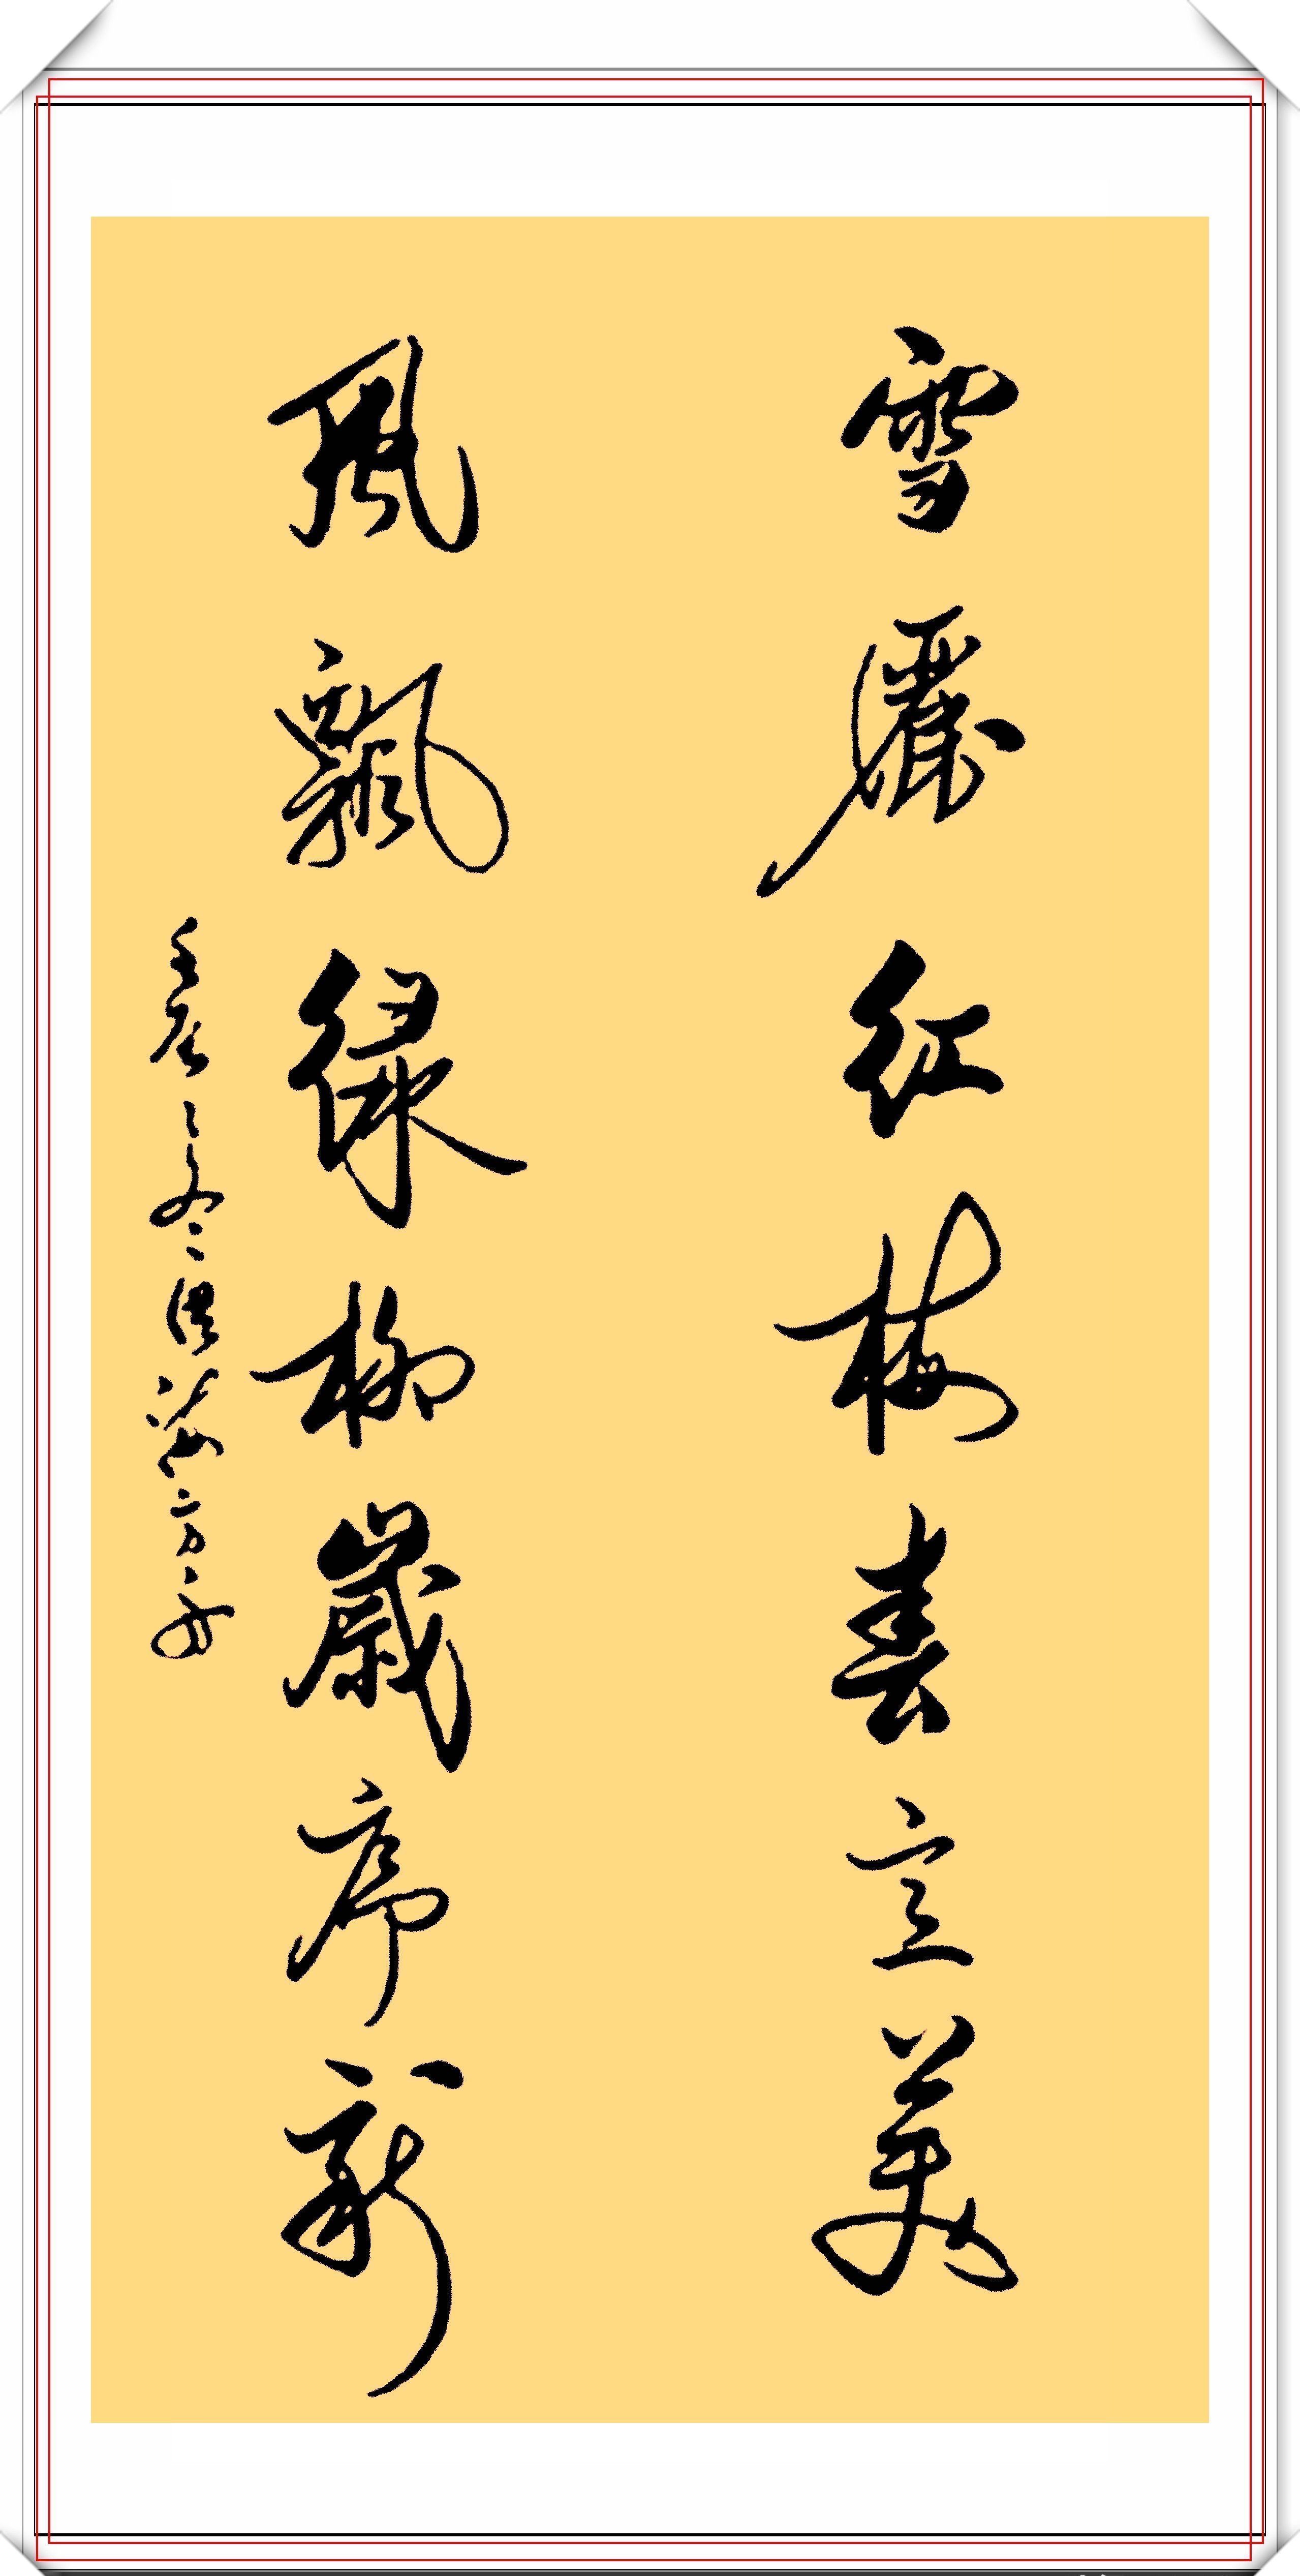 雪麗红梅春立美
風飄绿柳歲序新
壬辰之冬